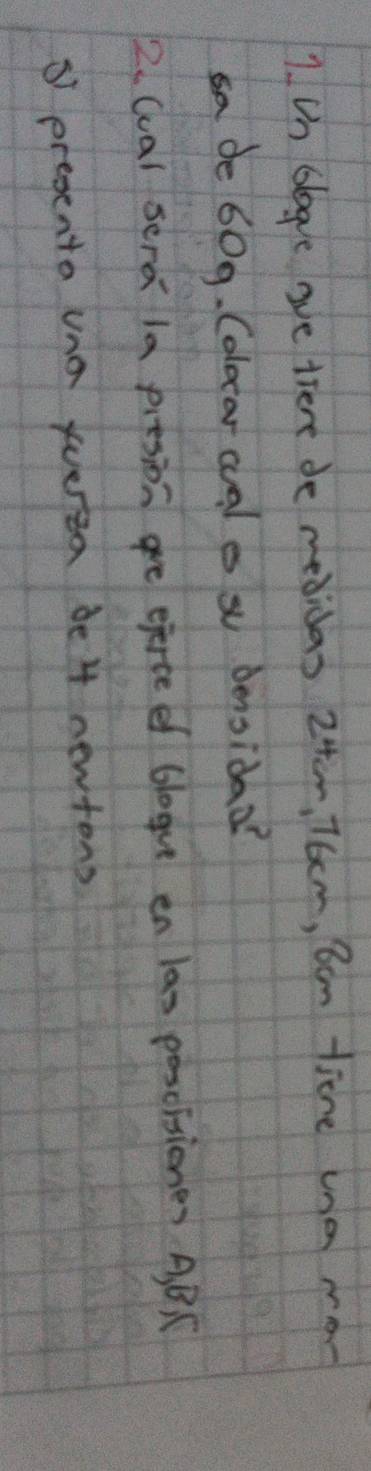 1. Un bloque que tiene de medidas 24cm, 16cm, 8cm tiene una ma
sa de 60g. Colocar cual es su densidad?
2. Cual será la presión que ejerce el bloque en las posciisiones A,B,C
si presenta una fuerza de 4 newtons